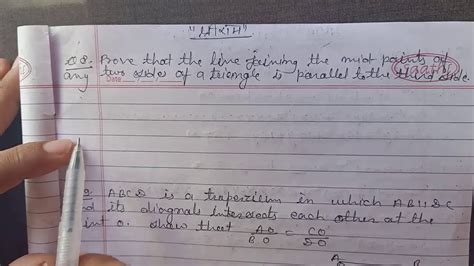 "श्री राम"
Q8. Prove that the line joining the mid points of
any two sides of a triangle is parallel to the third side.
Date
ABCD is a trapezium in which AB || DC
its diagnals intersects each other at the
int O. show that AO/BO = CO/DO
A